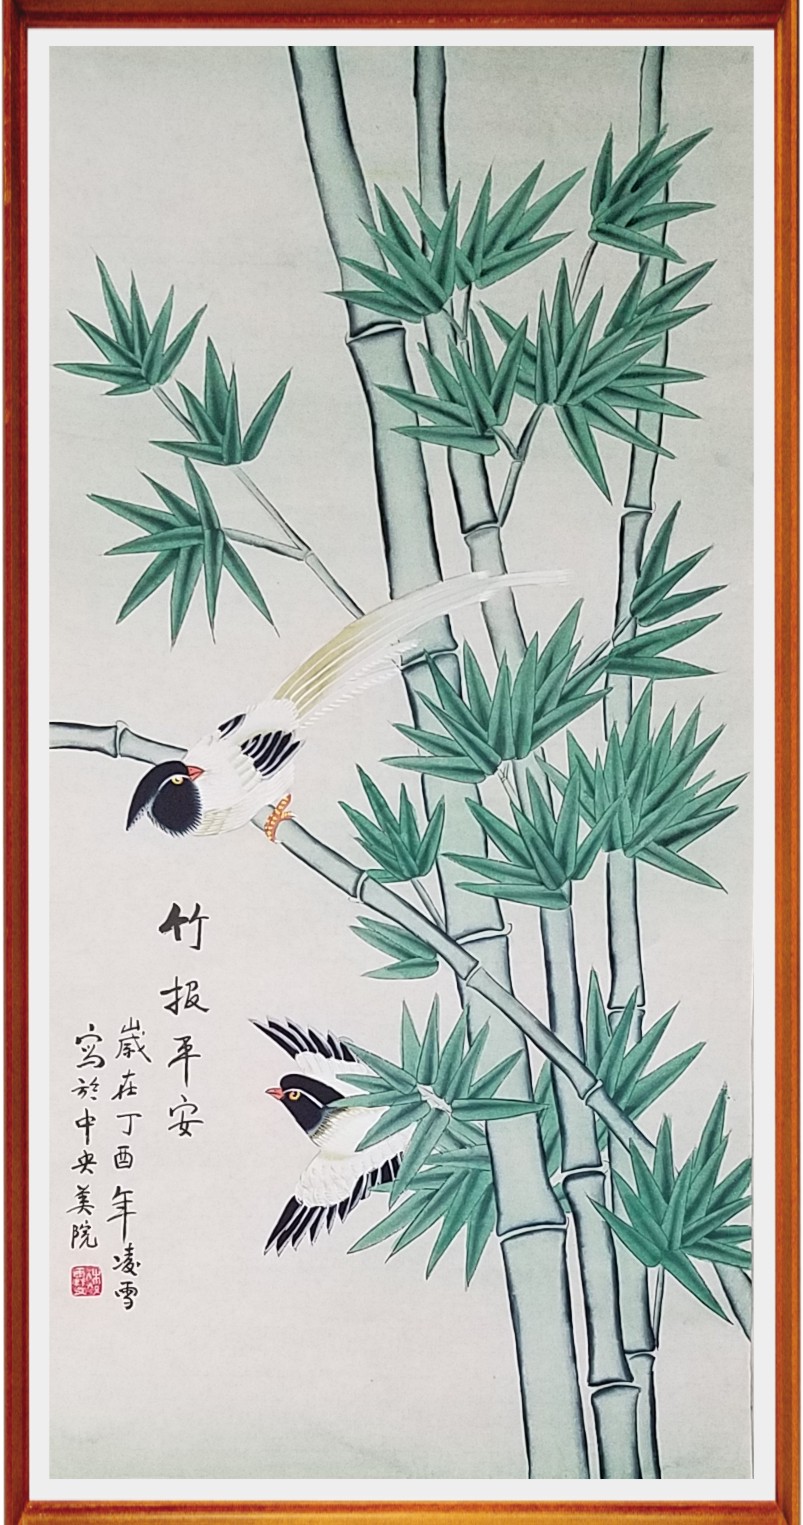 竹报平安
歲在丁酉年凌雪
写於中央美院